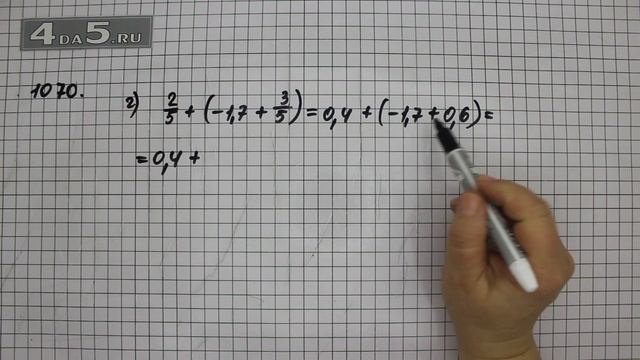 4DA5.RU
1070. г) 2/5 + (-1,7 + 3/5) = 0,4 + (-1,7 + 0,6) =
= 0,4 +